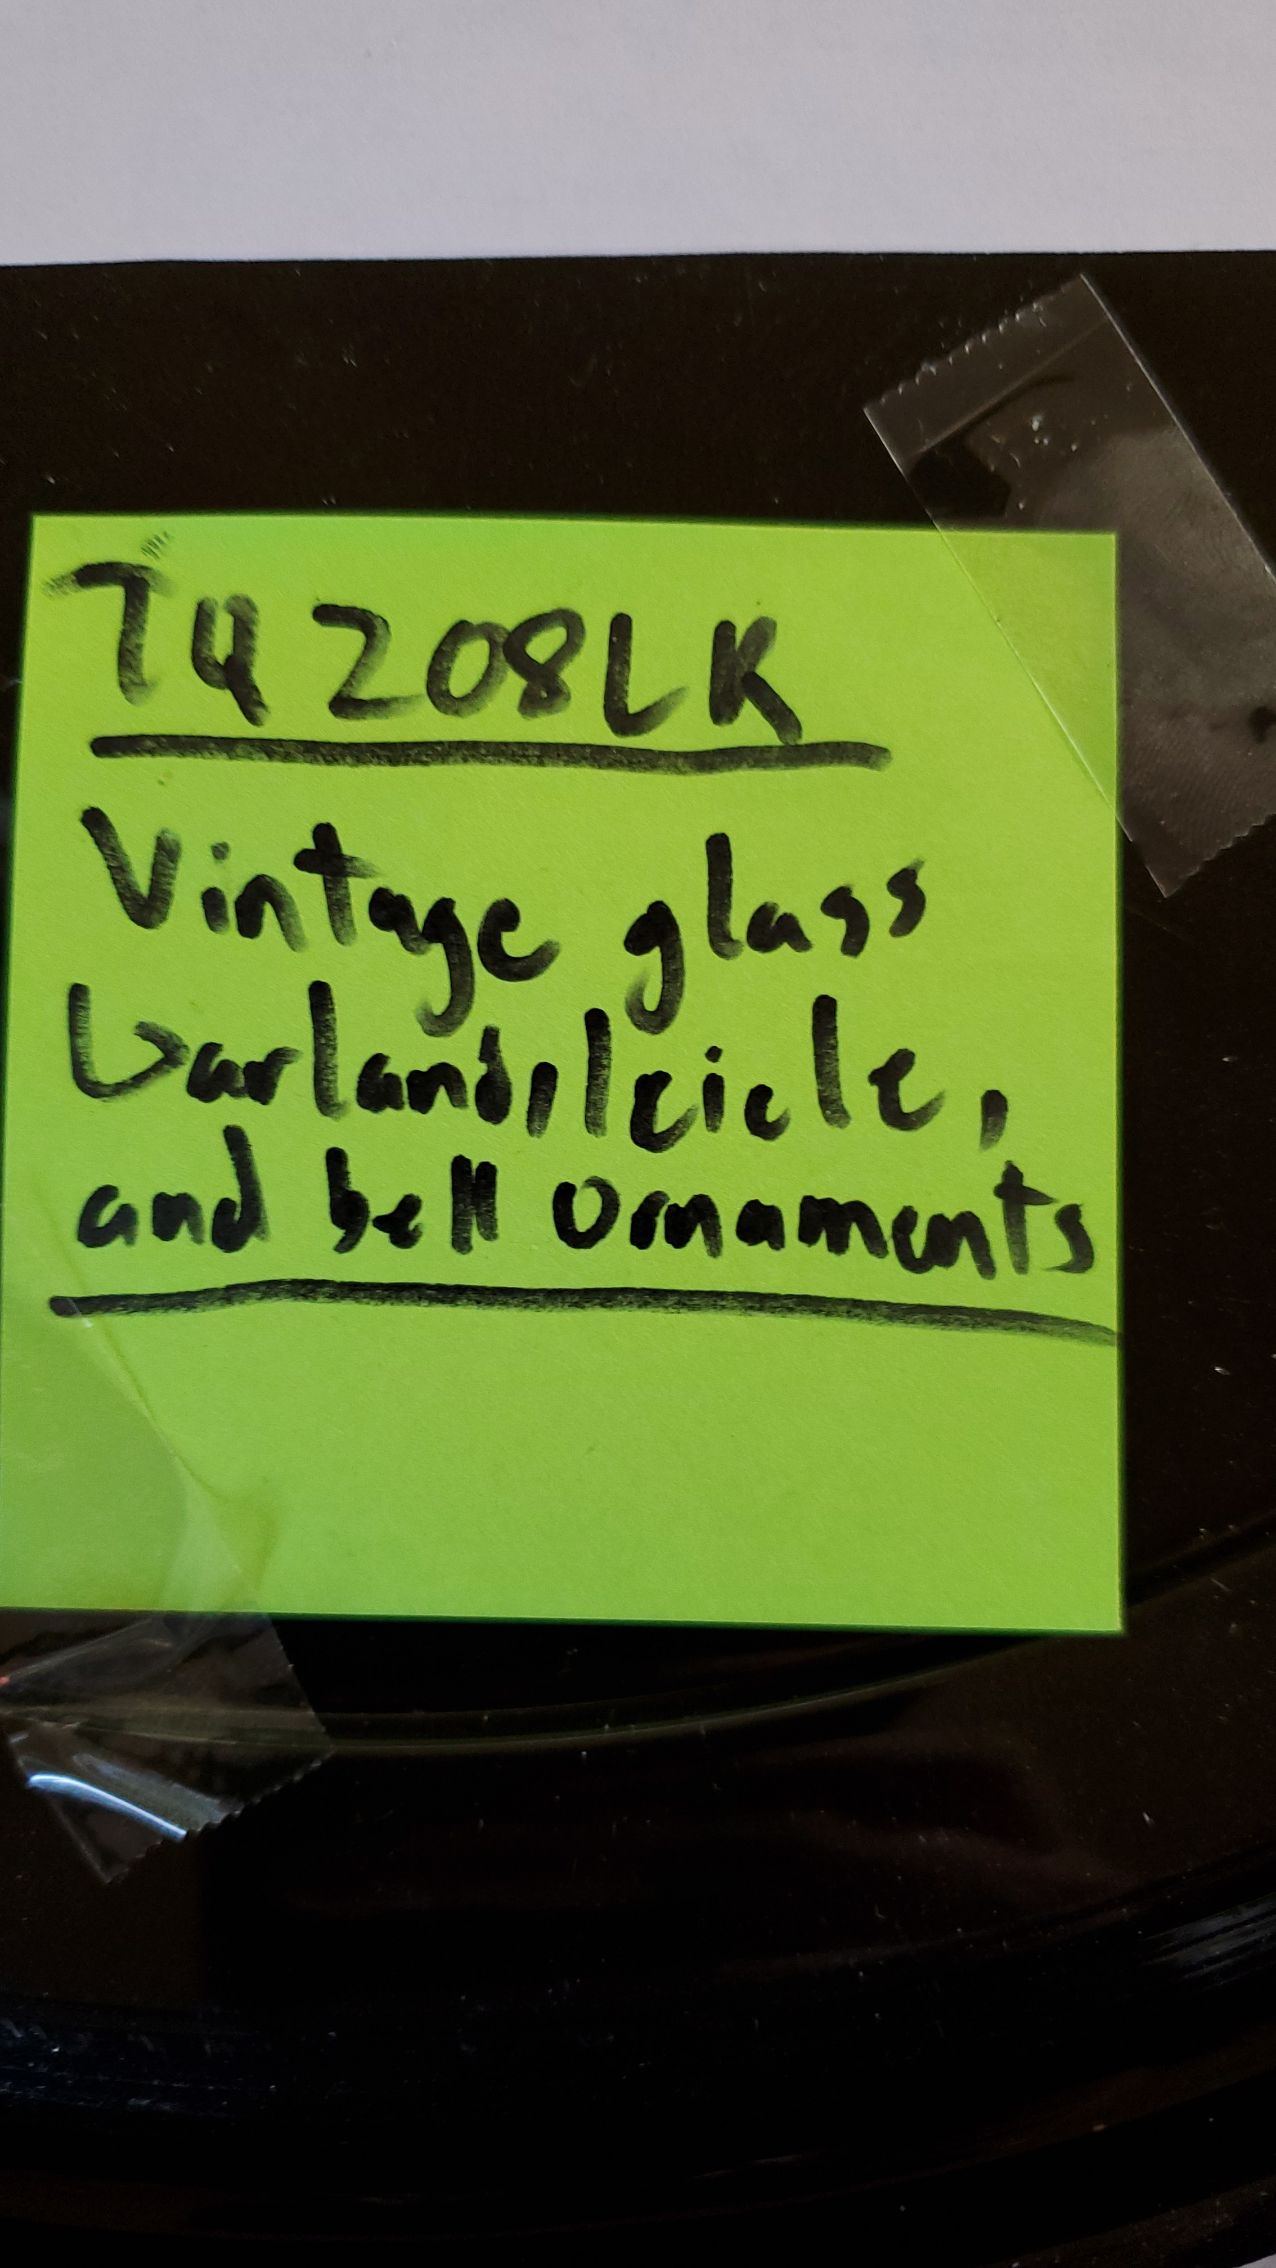 TQ208LK
Vintage glass
Garland, Icicle,
and bell ornaments